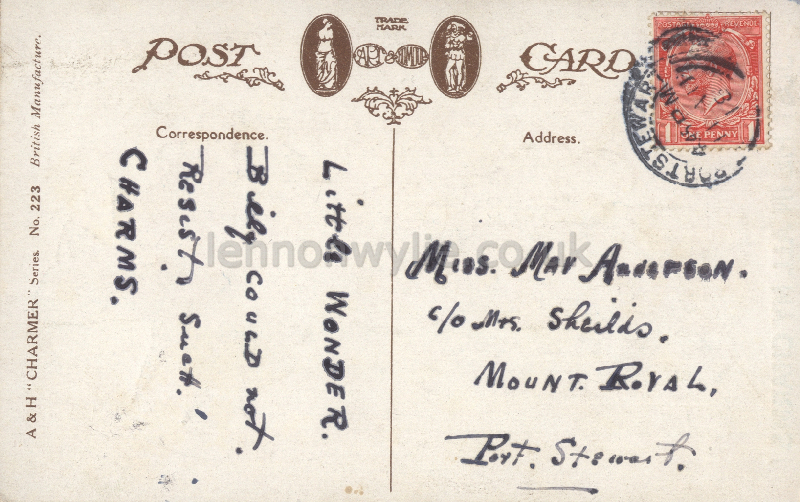 POST CARD
TRADE
MARK
ART & HUMOUR
Correspondence.
Address.
LITTLE WONDER.
Billy COULD NOT.
RESIST. Such.!
CHARMS.
Miss. May Anderson.
c/o Mrs. Sheilds.
MOUNT. ROYAL,
Port. Stewart.
POSTAGE REVENUE
1 ONE PENNY 1
PORTSTEWART
A & H "CHARMER" Series. No. 223 British Manufacture.
lennonwylie.co.uk